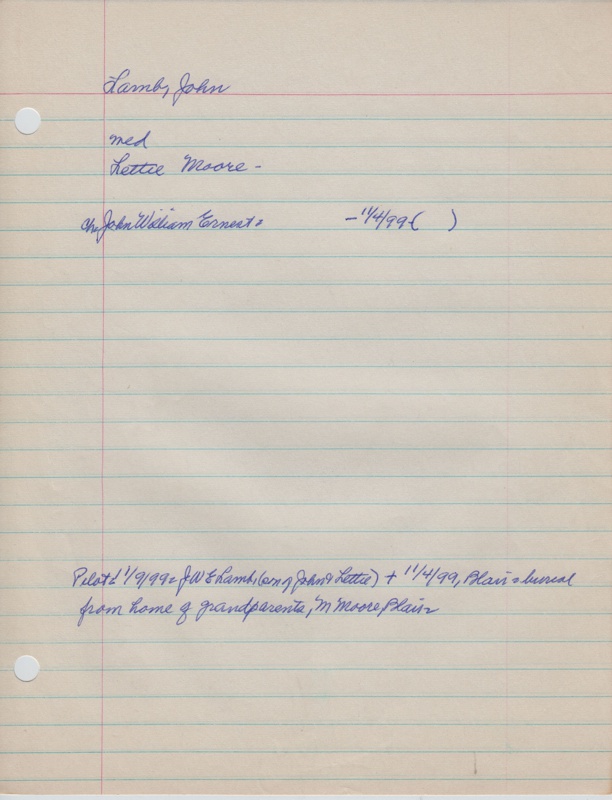 Lamb, John
med
Lettie Moore -
Ch, John William Ernest: - 11/4/99 ( )
Pilot: 11/9/99: J W E Lamb, (son of John & Lettie) + 11/4/99, Blair: burial
from home of grandparents, M Moore, Blair